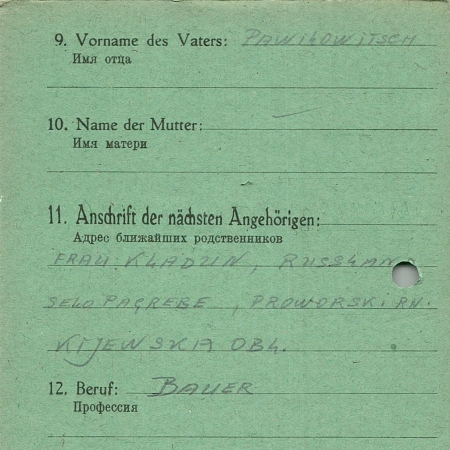 9. Vorname des Vaters: PAWILOWITSCH
Имя отца
10. Name der Mutter:
Имя матери
11. Anschrift der nächsten Angehörigen:
Адрес ближайших родственников
FRAU: KLADUN, RUSSLAND
SELO PAGREBE, PROWORSKI. RN.
KIJEWSKIA OBL.
12. Beruf: BAUER
Профессия